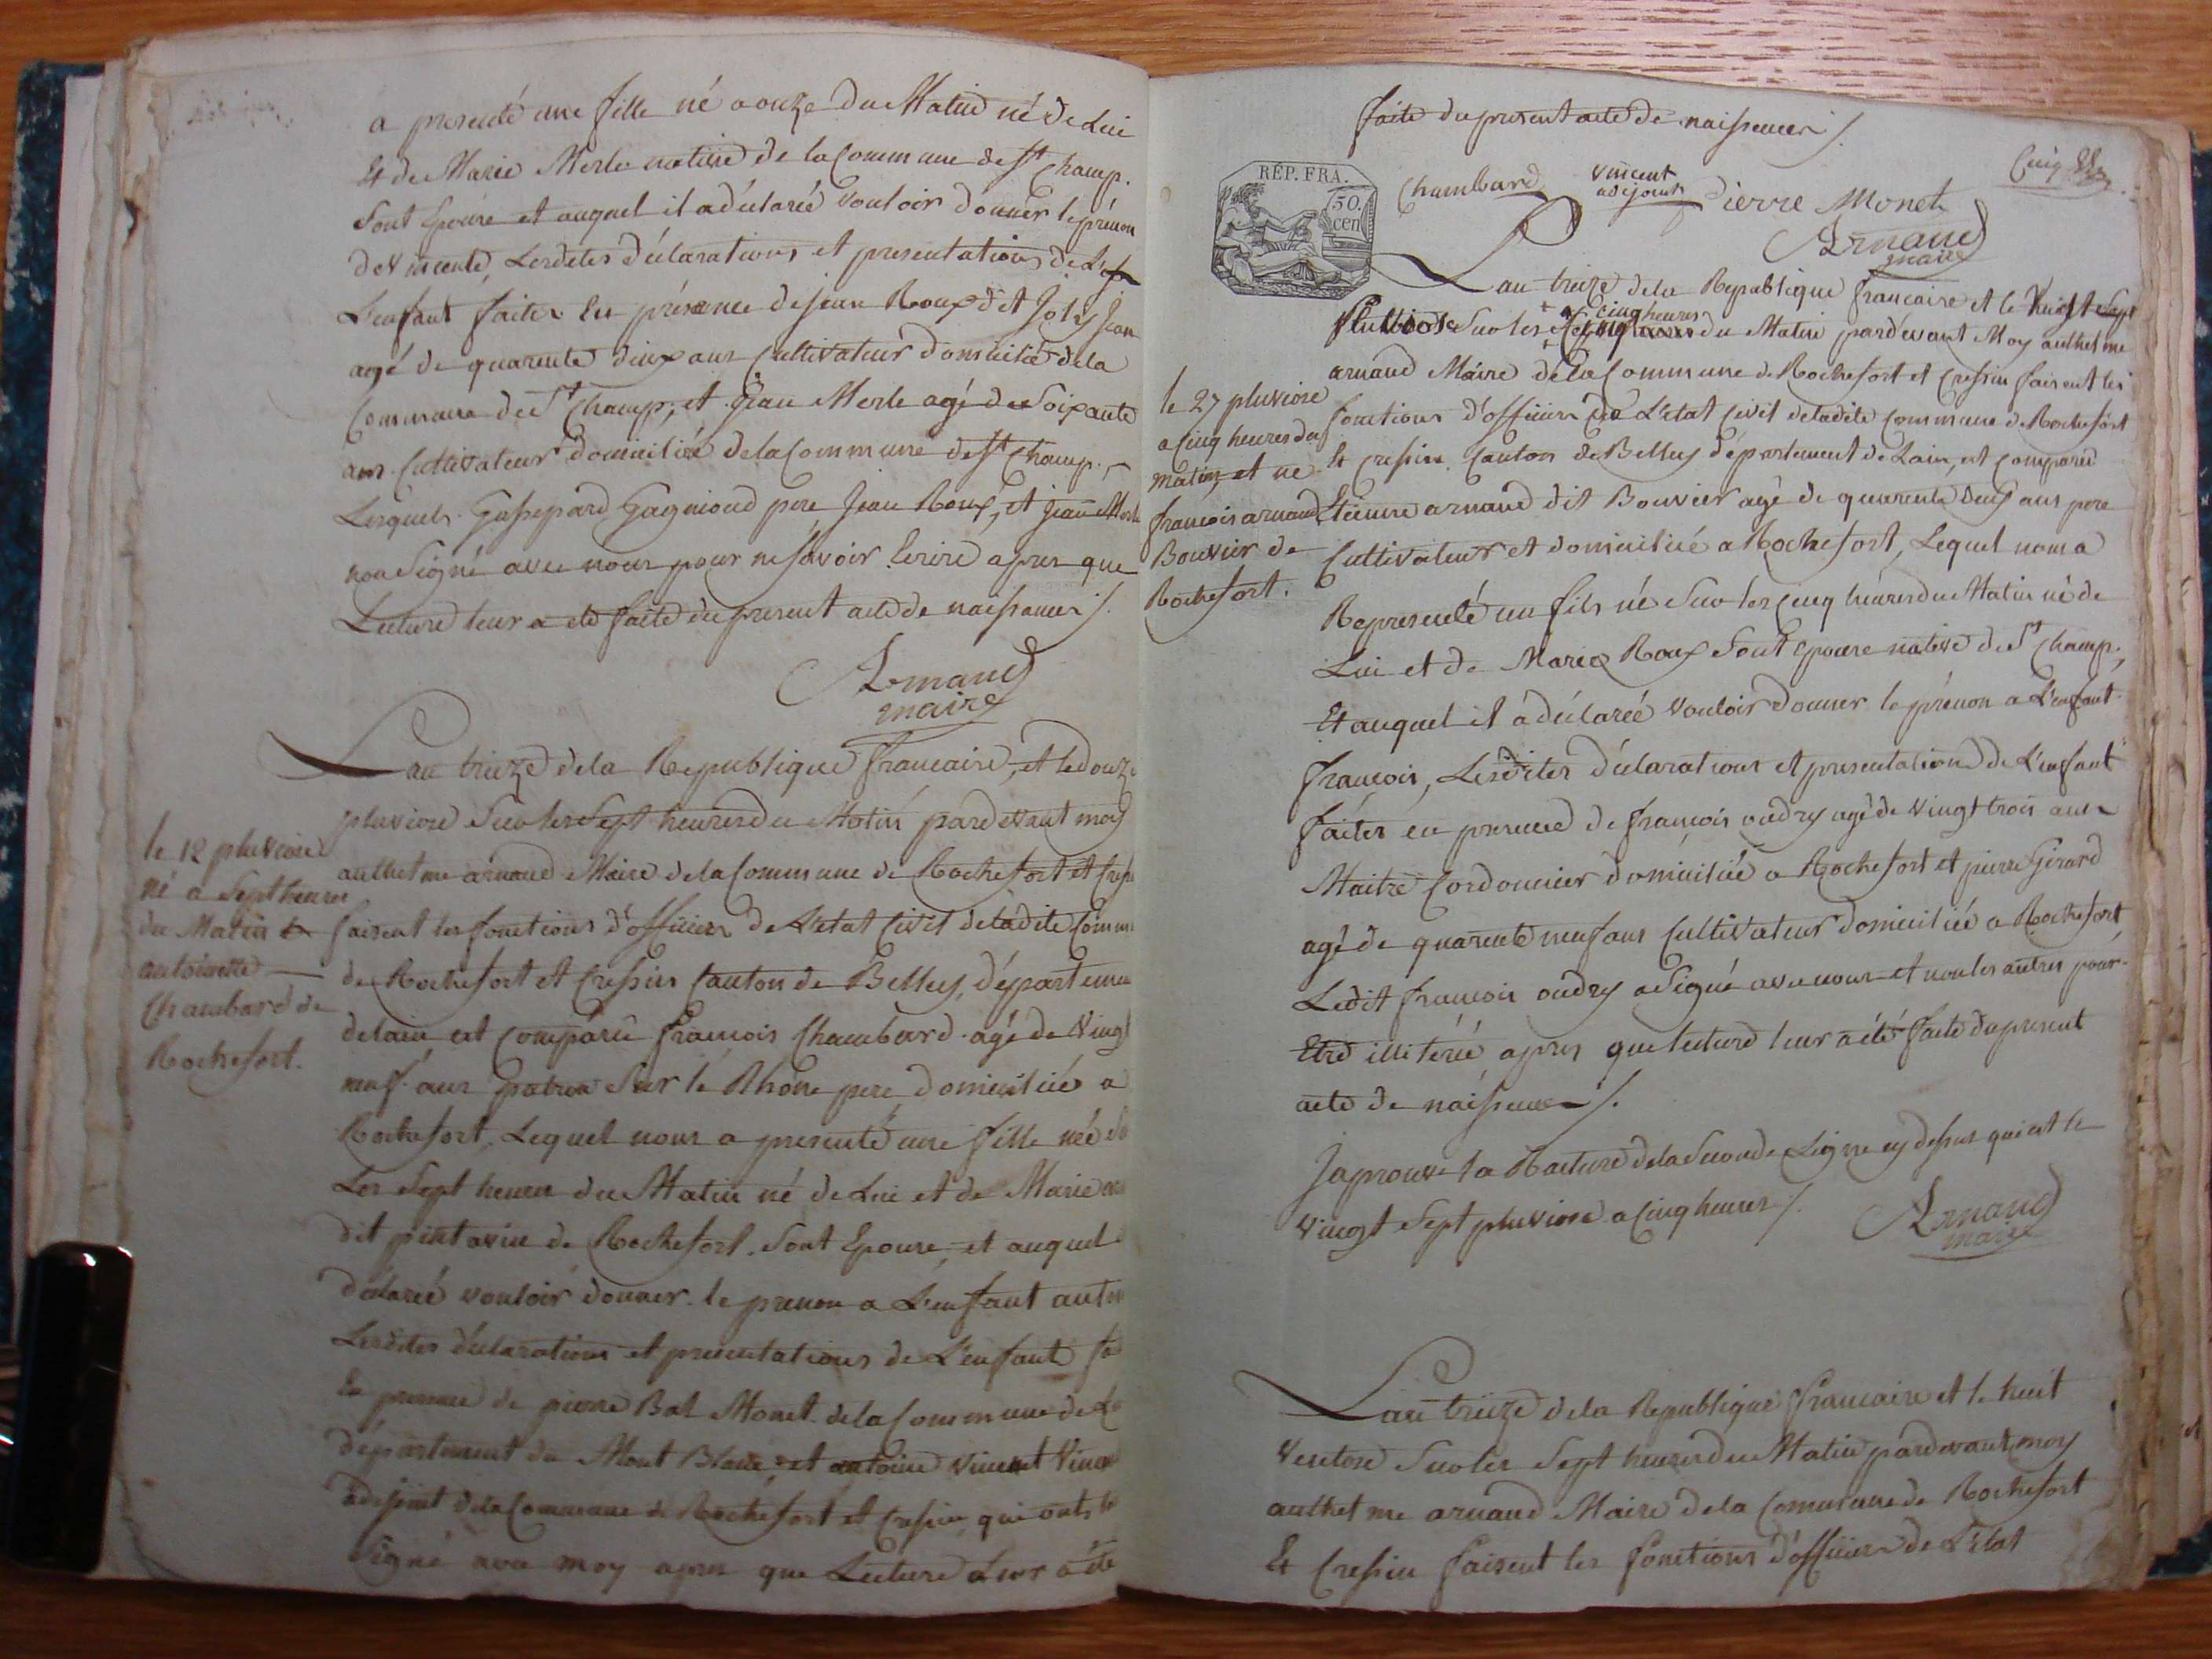 a presenté une fille né a onze du Matin né de Lui
Et de Marie Merle native de la Commune de St Champ.
Sont Epouse et auquel il a déclareé Vouloir donner le prénom
de Vincente, Lesdites déclarations et presentations de
L'enfant faites En présence de jean Roux dit Joly Jean
agé de quarente deux ans Cultivateur domicilié de la
Commune de St Champ, et jean Merle agé de Soixante
ans Cultivateur domicilié de la Commune de St Champ.
Lesquels Gaspard Gagnioud pere Jean Roux, et jean Merle
non Signé avec nous pour ne Savoir Ecrire apres que
Lecture leur a eté faite du present acte de naissance /.
Arnaud
maire
Lan treize de la Republique francaise, et le douze
pluviose Sur les Sept heures du Matin pardevant moy
anthelme arnaud Maire de la Commune de Rochefort et
le 12 pluviose
né a Sept heures
du Matin
antoinette
Chambard de
Rochefort.
faisent les fonctions d'officier de L'etat Civil de ladite
de Rochefort et Cressin Canton de Belley, département
de lain est Comparu François Chambard agé de Vingt
neuf ans patron Sur le Rhône pere domicilié a
Rochefort, Lequel nous a presenté une fille née
Les Sept heures du Matin né de Lui et de Marie
dit pintavin de Rochefort Sont Epouse, et auquel
déclareé vouloir donner le prenom a L'enfant
Lesdites déclarations et presentations de L'enfant
En presence de pierre Bal Monet de la Commune de
département du Mont Blanc, et antoine vincent
adejoint de la Commune de Rochefort et Cressin, qui onts
Signé avec moy apres que Lecture Leur a été
faite du present acte de naissence /.
Cinq
RÉP. FRA.
50.
cen
Chambard
vincent
adejoint
Pierre Monet
Arnaud
maire
Lan treize de la Republique francaise et le Vingt Sept
Pluviose Sur les cinq heures du Matin pardevant Moy anthelme
arnaud Maire de la Commune de Rochefort et Cressin faisent les
le 27 pluviose
a Cinq heures du
matin, et né
françois arnaud
Bouvier de
Rochefort.
fonctions d'officier de L'etat Civil de ladite Commune de Rochefort
Et Cressin Canton de Belley département de Lain, est Comparu
Etienne arnaud dit Bouvier agé de quarente deux ans pere
Cultivateur et domicilié a Rochefort, Lequel nous a
Representé un fils né Sur les Cinq heures du Matin né de
Lui et de Marie Roux Sont Epouse native de St Champ,
Et auquel il a déclareé Vouloir donner le prénom a L'enfant
françois, Lesdites déclarations et presentation de L'enfant
faites en presence de françois oudry agé de Vingt trois ans
Maitre Cordonnier domicilié a Rochefort et pierre Girard
agé de quarente neuf ans Cultivateur domicilié a Rochefort,
Ledit françois oudry a Signé avec nous et non les autres pour
Etre illiteré, apres que lecture leur a été faite du present
acte de naissence /.
Japrouve la Rature de la Seconde Ligne cy dessus qui est le
Vingt Sept pluviose a Cinq heures /.
Arnaud
maire
Lan treize de la Republique francaise et le huit
Ventose Sur les Sept heures du Matin pardevant moy
anthelme arnaud Maire de la Commune de Rochefort
Et Cressin faisent les fonctions d'officier de L'etat